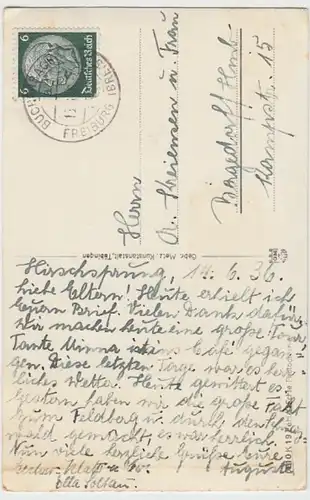 6 6
Deutsches Reich
FREIBURG (BREISG
Herrn
A. Heinsen u. Frau
Bergedorff/Hmb.
15
Gebr. Metz, Kunstanstalt, Tübingen
Hirschsprung, 14. 6. 36.
Liebe Eltern! Heute erhielt ich
Euern Brief. Vielen Dank dafür
Wir machen heute eine große Tour
Tante Minna ist ins Café gegan-
gen. Diese letzten Tage war es herr-
liches Wetter. Heute gewittert es
Gestern haben wir die große Fahrt
zum Feldberg u. durch den
wald gemacht, es war herrlich.
Nun viele herzliche Grüße Eure
Auguste